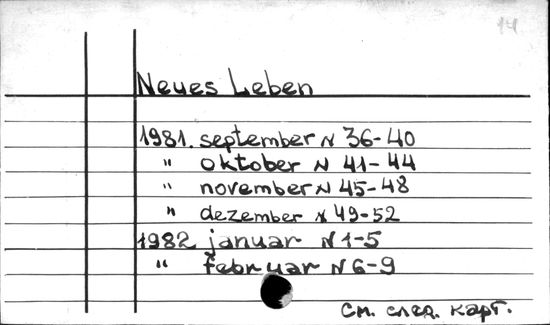 14
Neues Leben
1981. september N 36-40
" oktober N 41-44
" november N 45-48
" dezember N 49-52
1982 januar N 1-5
" februar N 6-9
См. след. карт.